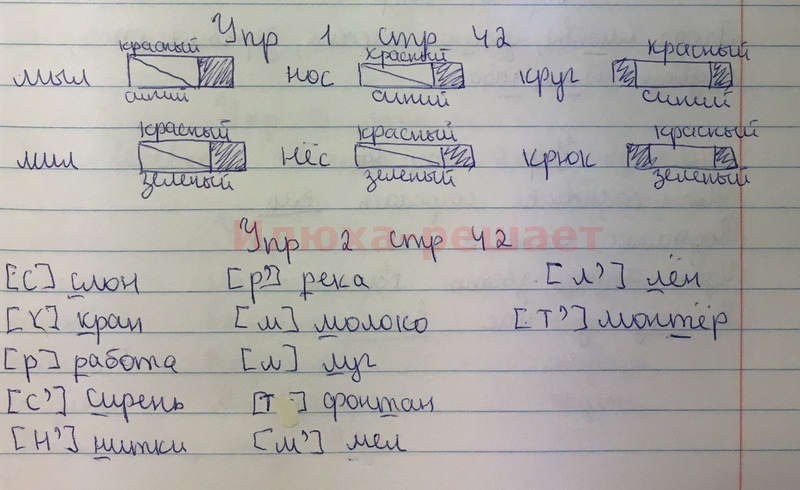 Упр 1 стр 42
красный красный красный
мыл нос круг
синий синий синий
красный красный красный
мил нёс крюк
зеленый зеленый зеленый
Илюха решает
Упр 2 стр 42
[С] слон [р'] река [л'] лён
[К] кран [м] молоко [Т'] монтёр
[р] работа [л] луг
[С'] Сирень [Т] фонтан
[Н'] нитки [м'] мел